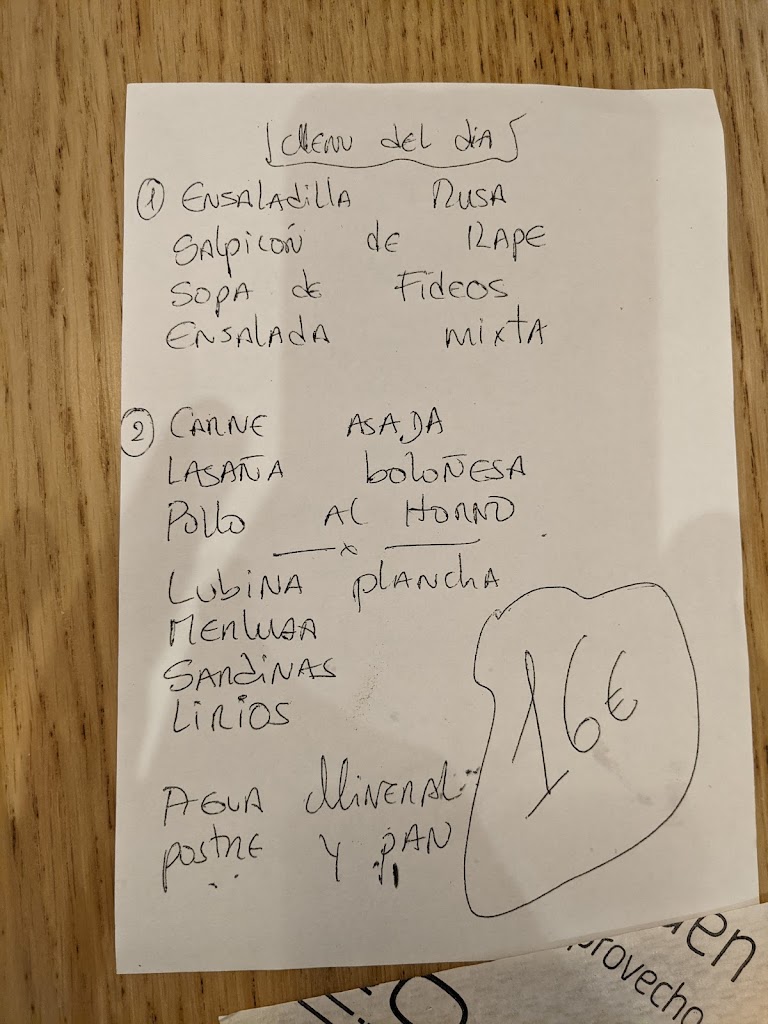 Menu del dia
1 Ensaladilla Rusa
Salpicoñ de Rape
Sopa de Fideos
Ensalada mixta
2 Carne asada
Lasaña boloñesa
Pollo al Horno
x
Lubina plancha
Merlusa
Sardinas
Lirios
16€
Agua Mineral
postre y pan
en
provecho